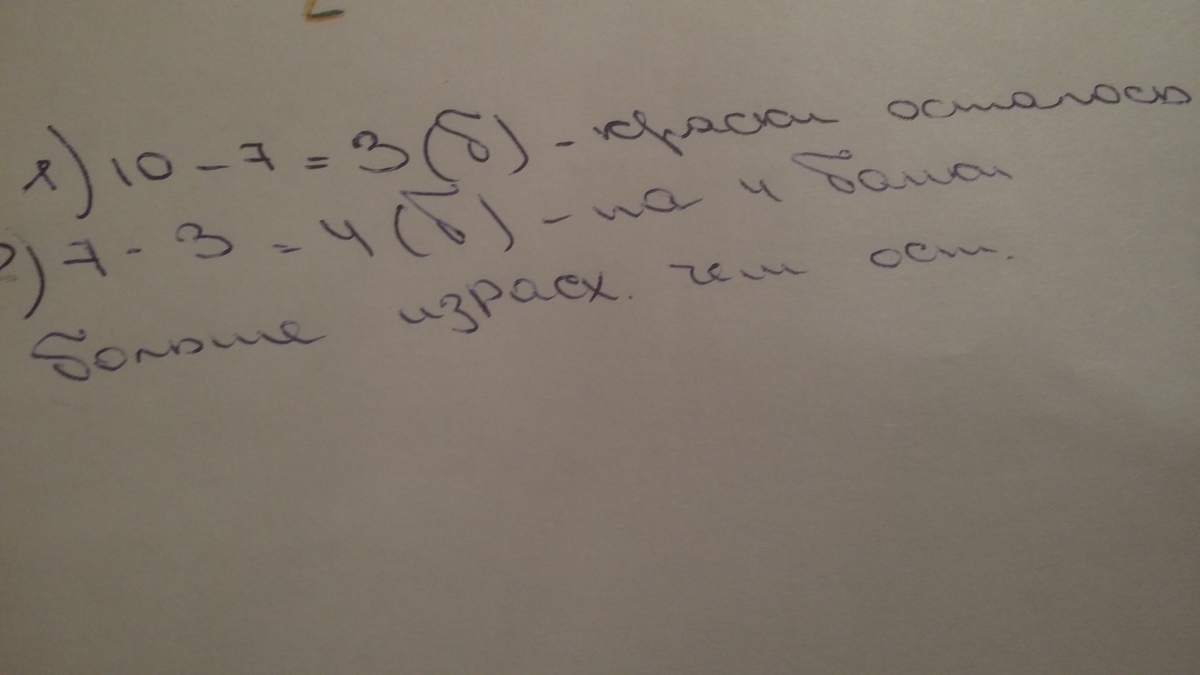 1) 10 - 7 = 3 (б) - краски осталось
2) 7 - 3 = 4 (б) - на 4 банки
больше израсх. чем ост.